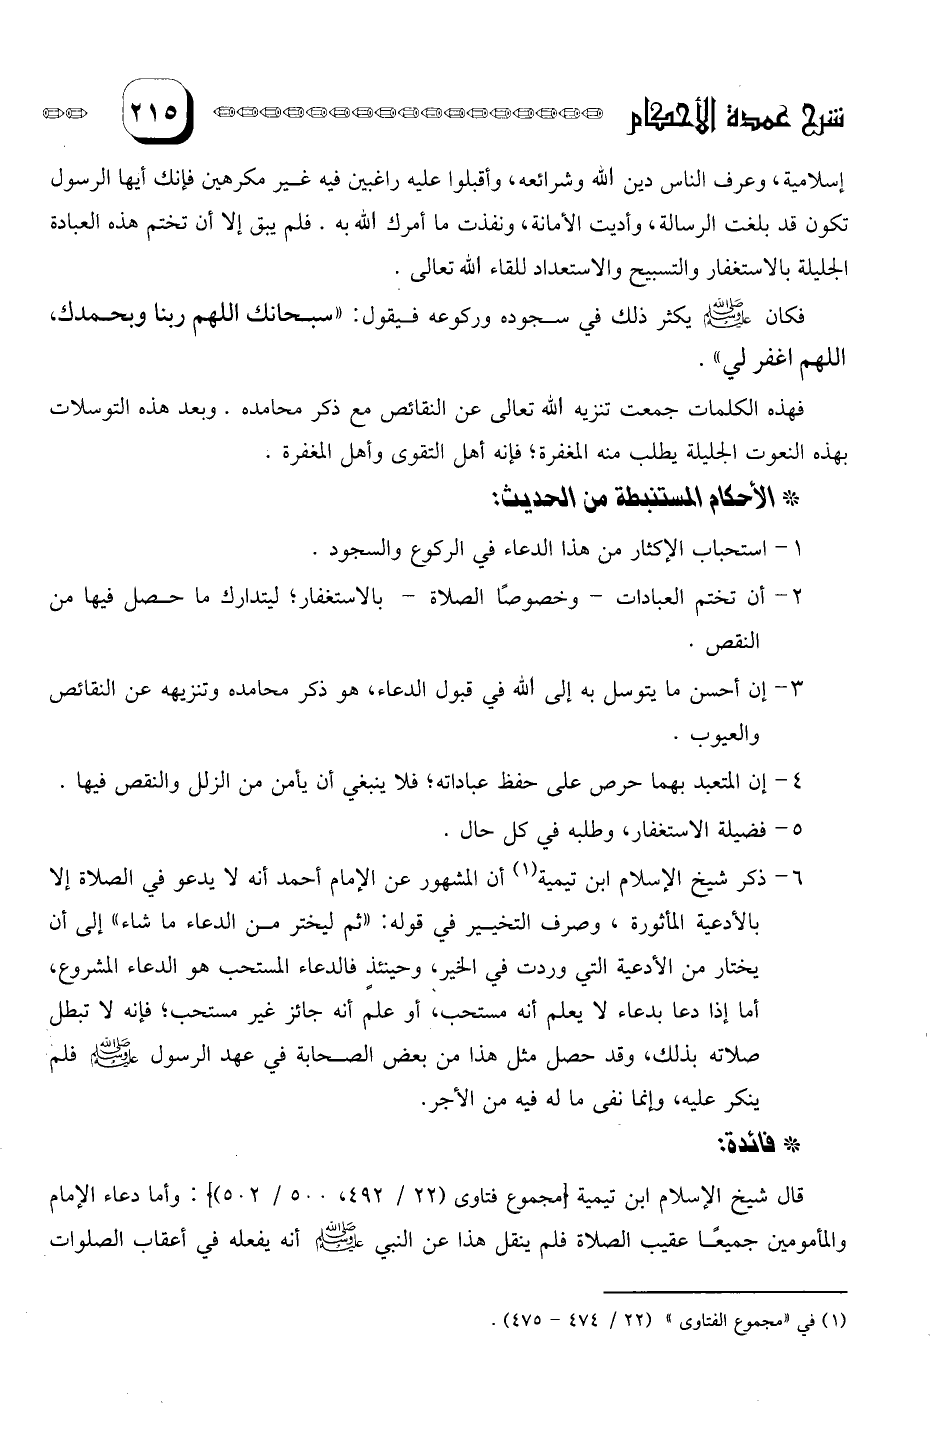 شرح عمدة الأحكام ٢١٥
إسلامية، وعرف الناس دين الله وشرائعه، وأقبلوا عليه راغبين فيه غير مكرهين فإنك أيها الرسول
تكون قد بلغت الرسالة، وأديت الأمانة، ونفذت ما أمرك الله به . فلم يبق إلا أن تختم هذه العبادة
الجليلة بالاستغفار والتسبيح والاستعداد للقاء الله تعالى .
فكان ﷺ يكثر ذلك في سجوده وركوعه فيقول: «سبحانك اللهم ربنا وبحمدك،
اللهم اغفر لي» .
فهذه الكلمات جمعت تنزيه الله تعالى عن النقائص مع ذكر محامده . وبعد هذه التوسلات
بهذه النعوت الجليلة يطلب منه المغفرة؛ فإنه أهل التقوى وأهل المغفرة .
* الأحكام المستنبطة من الحديث:
١- استحباب الإكثار من هذا الدعاء في الركوع والسجود .
٢- أن تختم العبادات - وخصوصًا الصلاة - بالاستغفار؛ ليتدارك ما حصل فيها من
النقص .
٣- إن أحسن ما يتوسل به إلى الله في قبول الدعاء، هو ذكر محامده وتنزيهه عن النقائص
والعيوب .
٤- إن المتعبد بهما حرص على حفظ عباداته؛ فلا ينبغي أن يأمن من الزلل والنقص فيها .
٥- فضيلة الاستغفار، وطلبه في كل حال .
٦- ذكر شيخ الإسلام ابن تيمية(١) أن المشهور عن الإمام أحمد أنه لا يدعو في الصلاة إلا
بالأدعية المأثورة ، وصرف التخيير في قوله: «ثم ليختر من الدعاء ما شاء» إلى أن
يختار من الأدعية التي وردت في الخير، وحينئذٍ فالدعاء المستحب هو الدعاء المشروع،
أما إذا دعا بدعاء لا يعلم أنه مستحب، أو علم أنه جائز غير مستحب؛ فإنه لا تبطل
صلاته بذلك، وقد حصل مثل هذا من بعض الصحابة في عهد الرسول ﷺ فلم
ينكر عليه، وإنما نفى ما له فيه من الأجر.
* فائدة:
قال شيخ الإسلام ابن تيمية {مجموع فتاوى (٢٢ / ٤٩٢، ٥٠٠ / ٥٠٢)} : وأما دعاء الإمام
والمأمومين جميعًا عقيب الصلاة فلم ينقل هذا عن النبي ﷺ أنه يفعله في أعقاب الصلوات
(١) في «مجموع الفتاوى » (٢٢ / ٤٧٤ - ٤٧٥) .